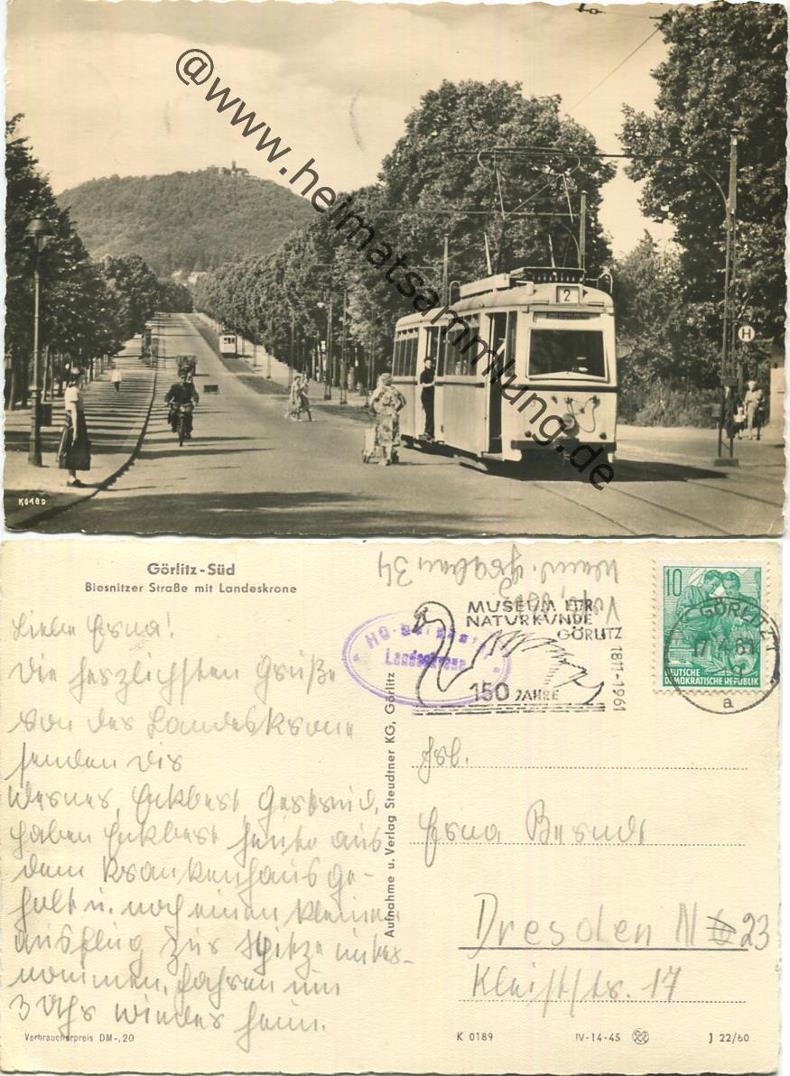 @www.heimatsammlung.de
2
H
K0189
Görlitz-Süd
Biesnitzer Straße mit Landeskrone
Liebe Erna!
Die herzlichsten Grüße
von der Landeskrone
senden dir
Werner, Eckbert, Gertrud,
haben Eckbert heute aus
dem Krankenhaus ge-
holt u. noch einen kleinen
Ausflug zur Spitze unter-
nommen, fahren um
3 Uhr wieder heim.
Verbraucherpreis DM -,20
Aufnahme u. Verlag Steudtner KG, Görlitz
34
HO-
Landeskrone
MUSEUM FÜR
NATURKUNDE
GÖRLITZ
1811-1961
150 JAHRE
10
DEUTSCHE
DEMOKRATISCHE REPUBLIK
GÖRLITZ 1
17.4.61
a
Frl.
Erna Berndt
Dresden N 23
Kleiststr. 17
K 0189
IV-14-45
J 22/60